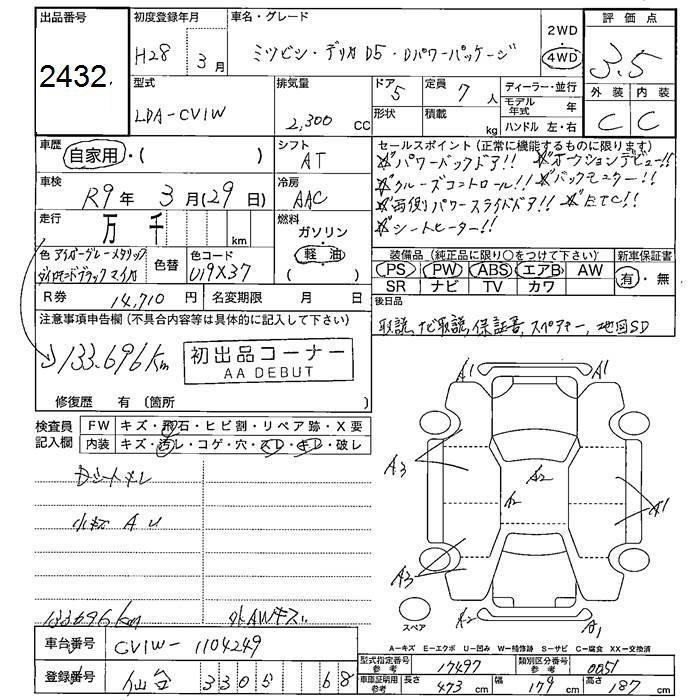 出品番号 初度登録年月 車名・グレード 2WD 評価点
2432 H28 3月 ミツビシ・デリカD5・Dパワーパッケージ 4WD 3.5
型式 排気量 ドア 5 定員 7人 ディーラー・並行 外装 内装
LDA-CV1W 2,300 CC 形状 積載 kg モデル年式 年 C C
ハンドル 左・右
車歴 自家用・( ) シフト AT セールスポイント(正常に機能するものに限ります)
☆パワーバックドア!! ☆オークションデビュー!!
車検 R9年 3月(29日) 冷房 AAC ☆クルーズコントロール!! ☆バックモニター!!
☆両側パワースライドドア!! ☆ETC!!
走行 万 千 km 燃料 ガソリン ☆シートヒーター!!
軽油
( )
色 アイガーグレーメタリック 色替 色コード U19X37
装備品(純正品に限り○をつけて下さい) 新車保証書
PS PW ABS エアB AW 有・無
SR ナビ TV カワ
R券 14,710円 名変期限 月 日 後日品
取説、ナビ取説、保証書、スペアキー、地図SD
注意事項申告欄(不具合内容等は具体的に記入して下さい)
133.696Km 初出品コーナー
AA DEBUT
修復歴 有(箇所 )
検査員記入欄 FW キズ・飛石・ヒビ割・リペア跡・X要
内装 キズ・汚レ・コゲ・穴・スレ・キレ・破レ
小キズ A U
133696Km 外AWキズ
A1 A1
A3 A2 A2 A1
A3
スペア A2 A1
A-キズ E-エクボ U-凹み W-補修跡 S-サビ C-腐食 XX-交換済
車台番号 CV1W-1104249
型式指定番号 参考 17497 類別区分番号 参考 0051
登録番号 仙台 3305 68
車庫証明用 参考 長さ 473 cm 幅 179 cm 高さ 187 cm